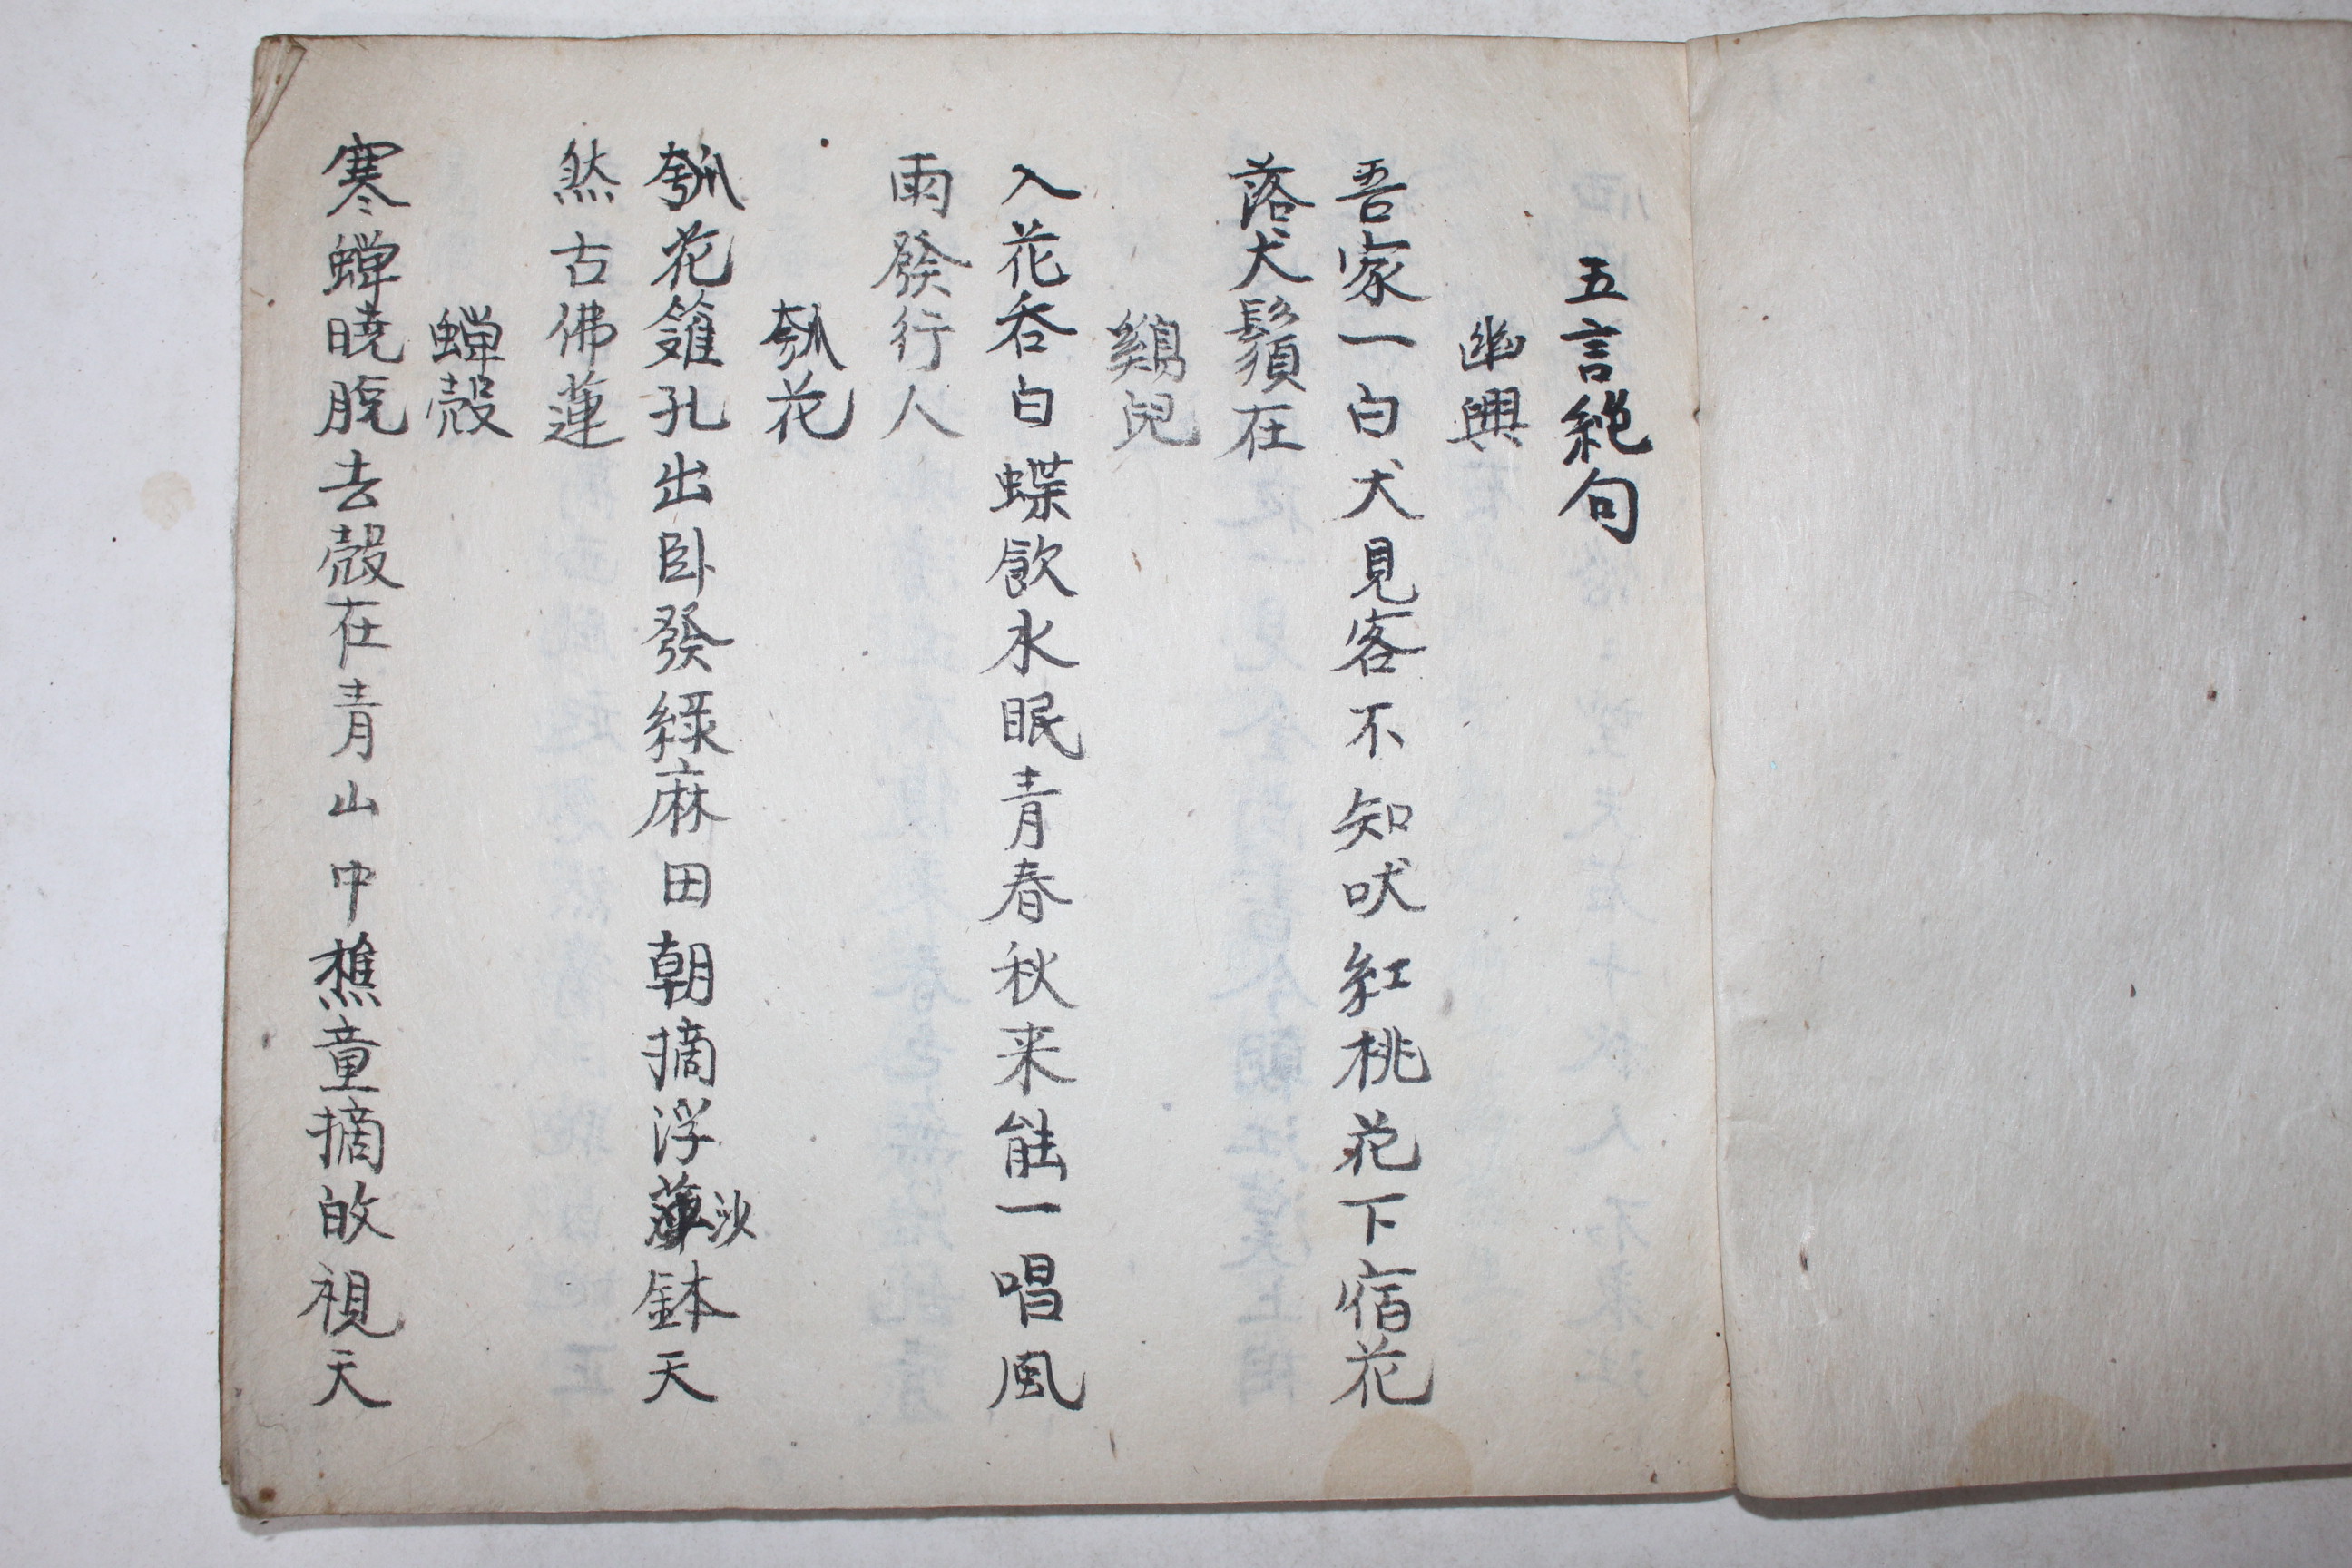 五言絕句
幽興
吾家一白犬見客不知吠紅桃花下宿花
落犬鬚在
鷄兒
入花呑白蝶飮水眠青春秋来能一唱風
雨發行人
匏花
匏花籬孔出臥發綠麻田朝摘浮沙鉢天
然古佛蓮
蟬殼
寒蟬曉脫去殼在青山中樵童摘故視天